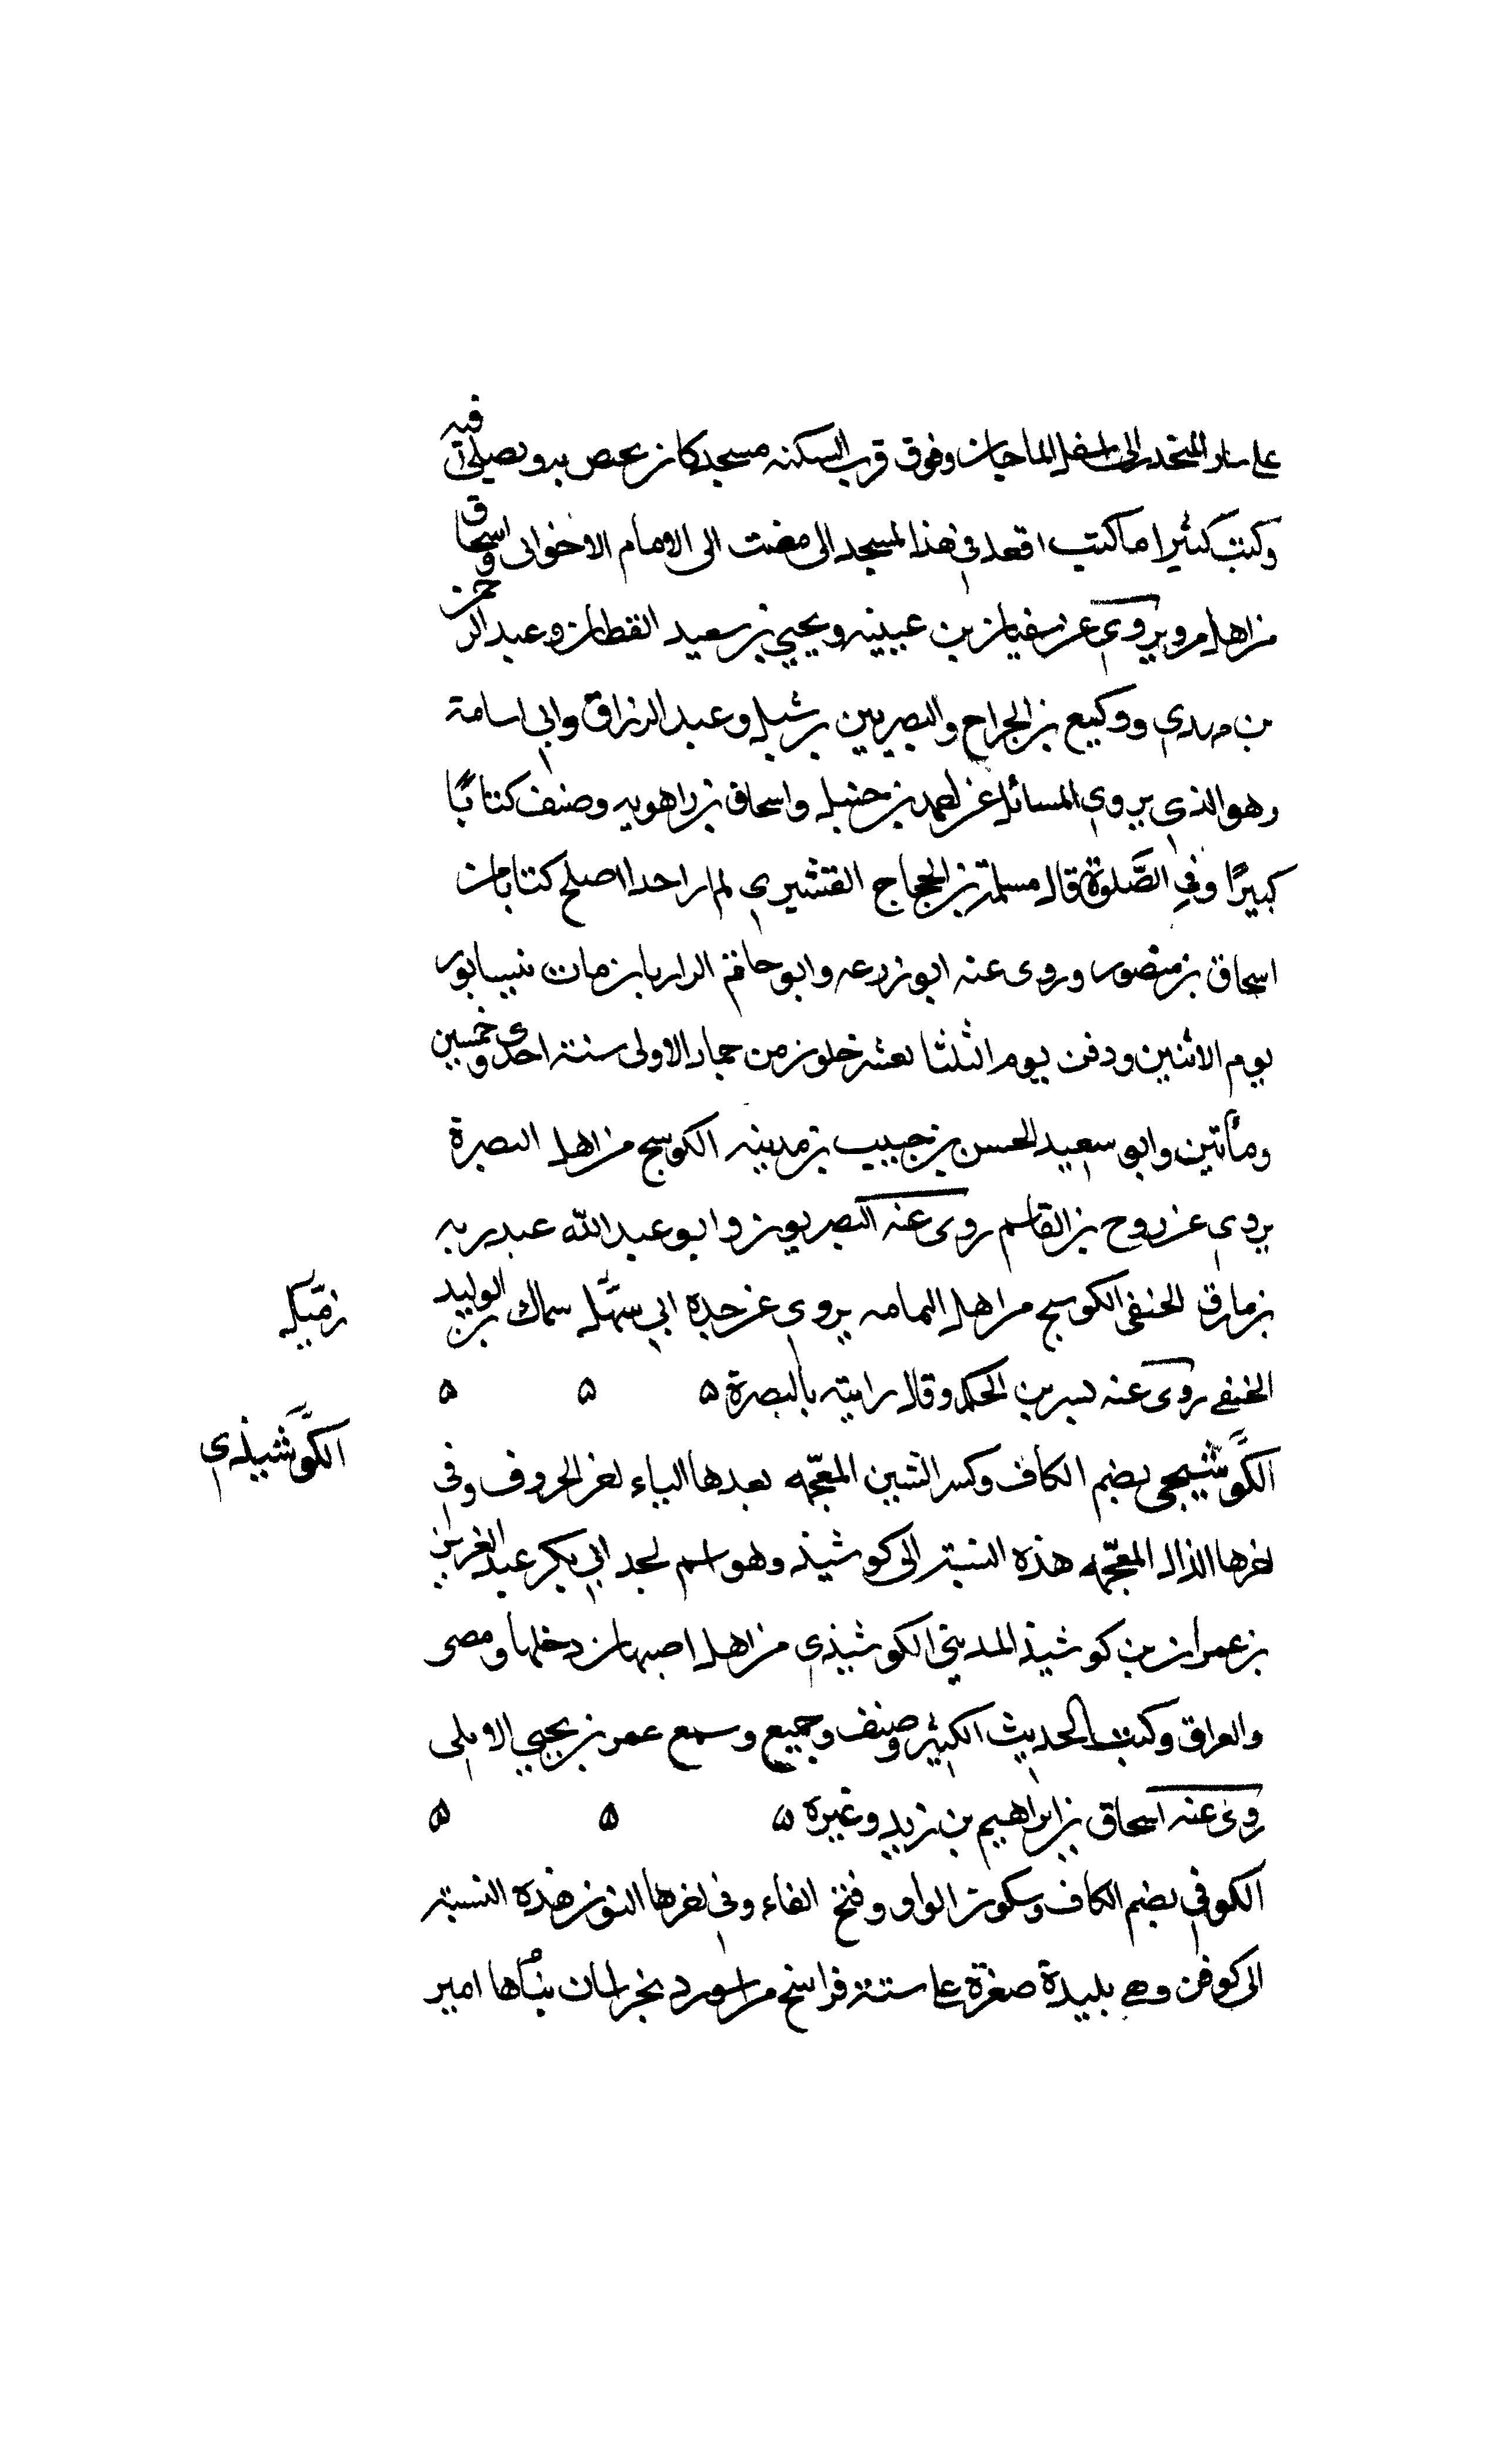 على يسار المنحدر الى اسفل الماجان وفوق قرب السكنه مسجد كان يختص به ويصلى فيه
وكنت كثيرا ما كنت اقعد في هذا المسجد الى مضت الى الامام الاخوان واسحاق
من اهل مرو يروي عن سفيان بن عيينه ويحيي بن سعيد القطان وعبد الرحمن
بن مهدي ووكيع بن الجراح والبصريين بن شبل وعبد الرزاق وابي اسامة
وهو الذي يروي المسائل عن احمد بن حنبل واسحاق بن راهويه وصنف كتابًا
كبيرًا وفي الصَّلوة قال مسلمة بن الحجاج القشيري لم ار احدا اصلح كتابا من
اسحاق بن منصور وروى عنه ابو زرعه وابو حاتم الرازيان مات نيسابور
يوم الاثنين ودفن يوم الثلثا لعشر خلون من جماد الاولى سنة احدى وخمسين
ومأتين وابو سعيد الحسن بن حبيب بن مدينه الكوسج من اهل البصرة
يروي عن روح بن القاسم روى عنه البصريون وابو عبد الله عبد ربه
بن مارق الحنفى الكوسج من اهل اليمامه يروي عن جده ابي سهل سماك بن الوليد
زميل
الحنفي روى عنه بسر بن الحكم وقال رايته بالبصرة ۵ ۵ ۵
الكوشيذي
الكوشيجى بضم الكاف وكسر الشين المعجمه بعدها الياء اخر الحروف وفي
اخرها الذال المعجمه هذه النسبة الى كوشيذ وهو اسم لجد ابي بكر عبد العزيز
بن عمران بن كوشيذ المديني الكوشيذي من اهل اصبهان دخلها ومصر
والعراق وكتب الحديث الكثير وصنف وجميع وسمع عمر بن يحيي الايلى
روى عنه اسحاق بن ابراهيم بن زيد وغيره ۵ ۵ ۵
الكوفي بضم الكاف وسكون الواو وفتح الفاء وفي اخرها النون هذه النسبة
الى كوفن وهي بليدة صغرة على ستة فراسخ من ابيورد بخراسان بنأها امير